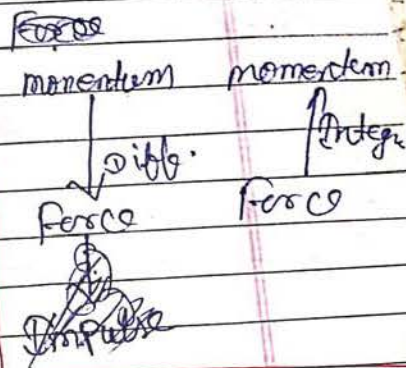 Force
momentum momentum
Diff. Integr
Force Force
Impulse